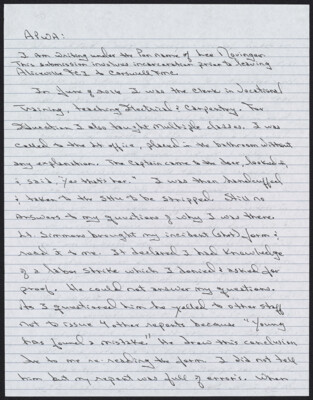 APWA:
I am writing under the Pen name of Lee Novinger.
This submission involves incarceration prior to leaving
Aliceville FCI to Carswell FMC.
In June of 2014 I was the Clerk in Vocational
Training, teaching Electrical & Carpentry. For
Education I also taught multiple classes. I was
called to the Lt office, placed in the bathroom without
any explanation. The Captain came to the door, looked in
& said, "Yes that's her." I was then handcuffed
& taken to the SHU to be stripped. Still no
answers to my questions of why I was there.
Lt. Simmons brought my incident (shot) form &
read it to me. It declared I had knowledge
of a labor strike which I denied & asked for
proof. He could not answer my questions.
As I questioned him he yelled to other staff
not to issue 4 other reports because "Young
has found a mistake." He drew this conclusion
due to me re-reading the form. I did not tell
him but my report was full of errors. When